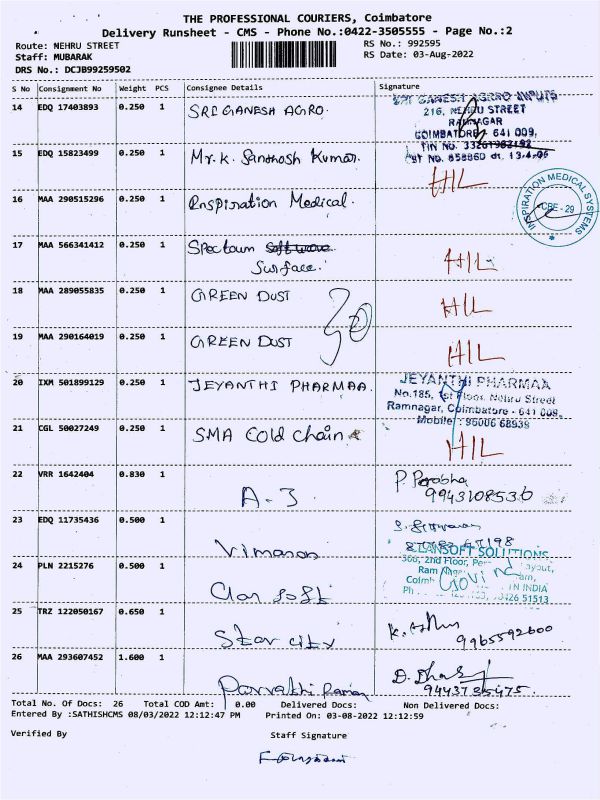 THE PROFESSIONAL COURIERS, Coimbatore
Delivery Runsheet - CMS - Phone No.:0422-3505555 - Page No.:2
Route: NEHRU STREET
RS No.: 992595
Staff: MUBARAK
RS Date: 03-Aug-2022
DRS No.: DCJB99259502
S No Consignment No Weight PCS Consignee Details Signature
14 EDQ 17403893 0.250 1 SRI GANESH AGRO.
SRI GANESH AGRRO INPUTS
216, NEHRU STREET
RAMNAGAR
COIMBATORE 641 009,
TIN No. 33261982192
15 EDQ 15823499 0.250 1 Mr. K. Santhosh Kumar.
HIL
16 MAA 290515296 0.250 1 Inspiration Medical.
INSPIRATION MEDICAL SYSTEMS
CBE - 29
17 MAA 566341412 0.250 1 Spectrum software
Surface.
HIL
18 MAA 289055835 0.250 1 GREEN DUST HIL
19 MAA 290164019 0.250 1 GREEN DUST HIL
20 IXM 501899129 0.250 1 JEYANTHI PHARMAA.
JEYANTHI PHARMAA
No.185, 1st Floor, Nehru Street
Ramnagar, Coimbatore - 641 009.
Mobile : 96006 68939
21 CGL 50027249 0.250 1 SMA Cold Chain HIL
22 VRR 1642404 0.830 1 A-J. P. Prabha
9943108530
23 EDQ 11735436 0.500 1 Vimanan
24 PLN 2215276 0.500 1 Clan soft
CLANSOFT SOLUTIONS
366, 2nd Floor,
Govind
25 TRZ 122050167 0.650 1 Star city
9965592600
26 MAA 293607452 1.600 1 Parvathi Raman
9443735475.
Total No. Of Docs: 26 Total COD Amt: 0.00 Delivered Docs: Non Delivered Docs:
Entered By :SATHISHCMS 08/03/2022 12:12:47 PM Printed On: 03-08-2022 12:12:59
Verified By Staff Signature